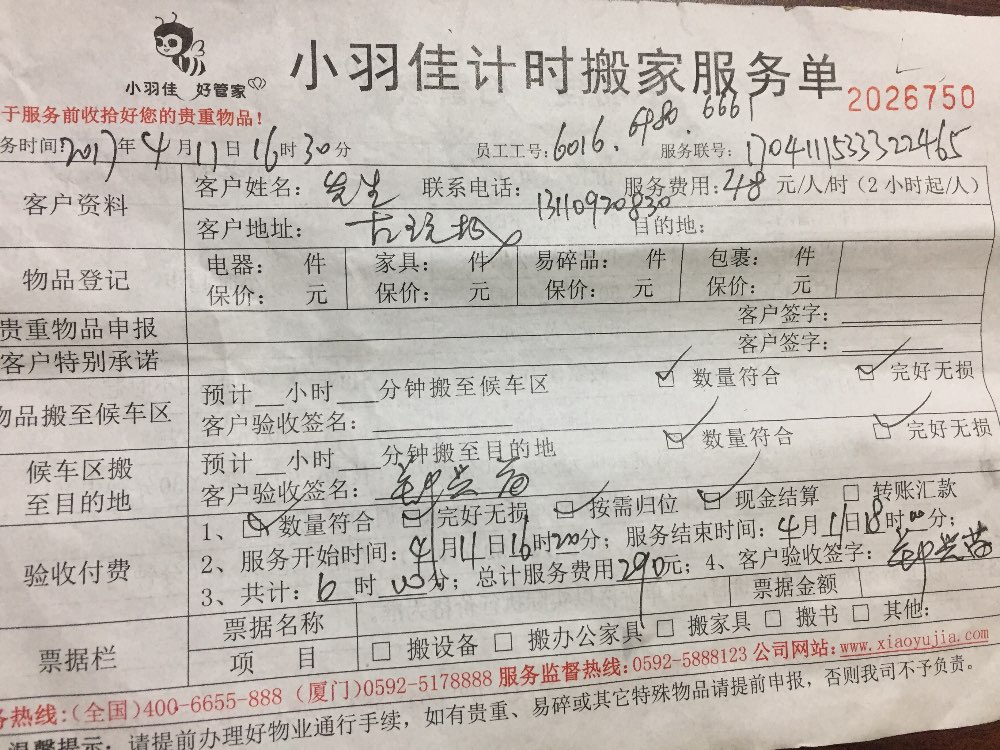 小羽佳 好管家
小羽佳计时搬家服务单
2026750
于服务前收拾好您的贵重物品！
务时间：2017年4月11日16时30分 员工工号：6016.6980.6661 服务联号：1704111533322465
客户资料 客户姓名：先生 联系电话：13110920830 服务费用：48元/人/时（2小时起/人）
客户地址： 目的地：
物品登记 电器： 件 家具： 件 易碎品： 件 包裹： 件
保价： 元 保价： 元 保价： 元 保价： 元
贵重物品申报 客户签字：
客户特别承诺 客户签字：
物品搬至候车区 预计 小时 分钟搬至候车区 数量符合 完好无损
客户验收签名：
候车区搬至目的地 预计 小时 分钟搬至目的地 数量符合 完好无损
客户验收签名：
验收付费 1、数量符合 完好无损 按需归位 现金结算 转账汇款
2、服务开始时间：4月11日16时20分；服务结束时间：4月11日18时00分；
3、共计：6时00分；总计服务费用290元；4、客户验收签字：
票据栏 票据名称 票据金额
项 目 搬设备 搬办公家具 搬家具 搬书 其他：
务热线：（全国）400-6655-888（厦门）0592-5178888 服务监督热线：0592-5888123 公司网站：www.xiaoyujia.com
温馨提示：请提前办理好物业通行手续，如有贵重、易碎或其它特殊物品请提前申报，否则我司不予负责。